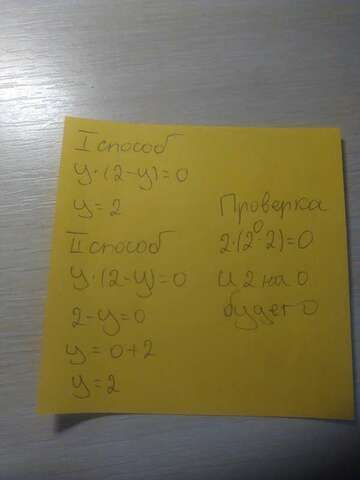 I способ
y·(2-y)=0
y=2
II способ
y·(2-y)=0
2-y=0
y=0+2
y=2
Проверка
0
2·(2-2)=0
и 2 на 0
будет 0